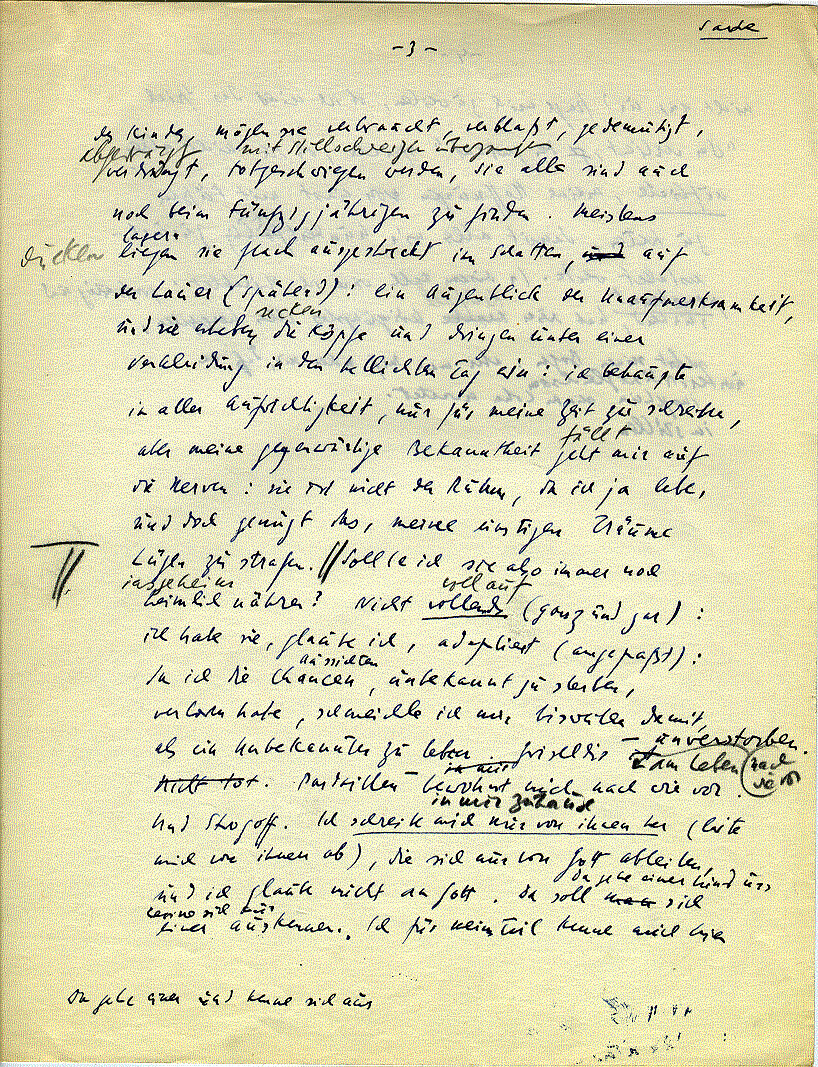 Sarde
- 3 -
des Kindes, mögen sie verbraucht, verblaßt, gedemütigt,
mit Stillschweigen übergangen
verdrängt, totgeschwiegen werden, sie alle sind auch
noch beim Fünfzigjährigen zu finden. Meistens
lagern
ducken liegen sie flach ausgestreckt im Schatten, und auf
der Lauer (spähend): ein Augenblick der Unaufmerksamkeit,
recken
und sie erheben die Köpfe und dringen unter einer
Verkleidung in den hellichten Tag ein: ich behaupte
in aller Aufrichtigkeit, nur für meine Zeit zu schreiben,
fällt
aber meine gegenwärtige Bekanntheit geht mir auf
die Nerven: sie ist nicht der Ruhm, da ich ja lebe,
und doch genügt das, meine einstigen Träume
II. Lügen zu strafen. // Sollte ich sie also immer noch
insgeheim vollauf
heimlich nähren? Nicht vollends (ganz und gar):
ich habe sie, glaube ich, adaptiert (angepaßt):
Aussichten
da ich die Chancen, unbekannt zu sterben,
verloren habe, schmeichle ich mir bisweilen damit,
als ein Unbekannter zu leben. Griseldis – unverstorben.
in mir am Leben nach wie vor
nicht tot. Pardaillan bewohnt mich nach wie vor.
in mir zuhause
Und Strogoff. Ich schreibe mich nur von ihnen her (leite
mich von ihnen ab), die sich nur von Gott ableiten,
da gehe einer hin und
und ich glaube nicht an Gott. Da soll man sich
kenne sich aus
einer auskennen. Ich für meinen Teil kenne mich hier
Da gehe einer und kenne sich aus